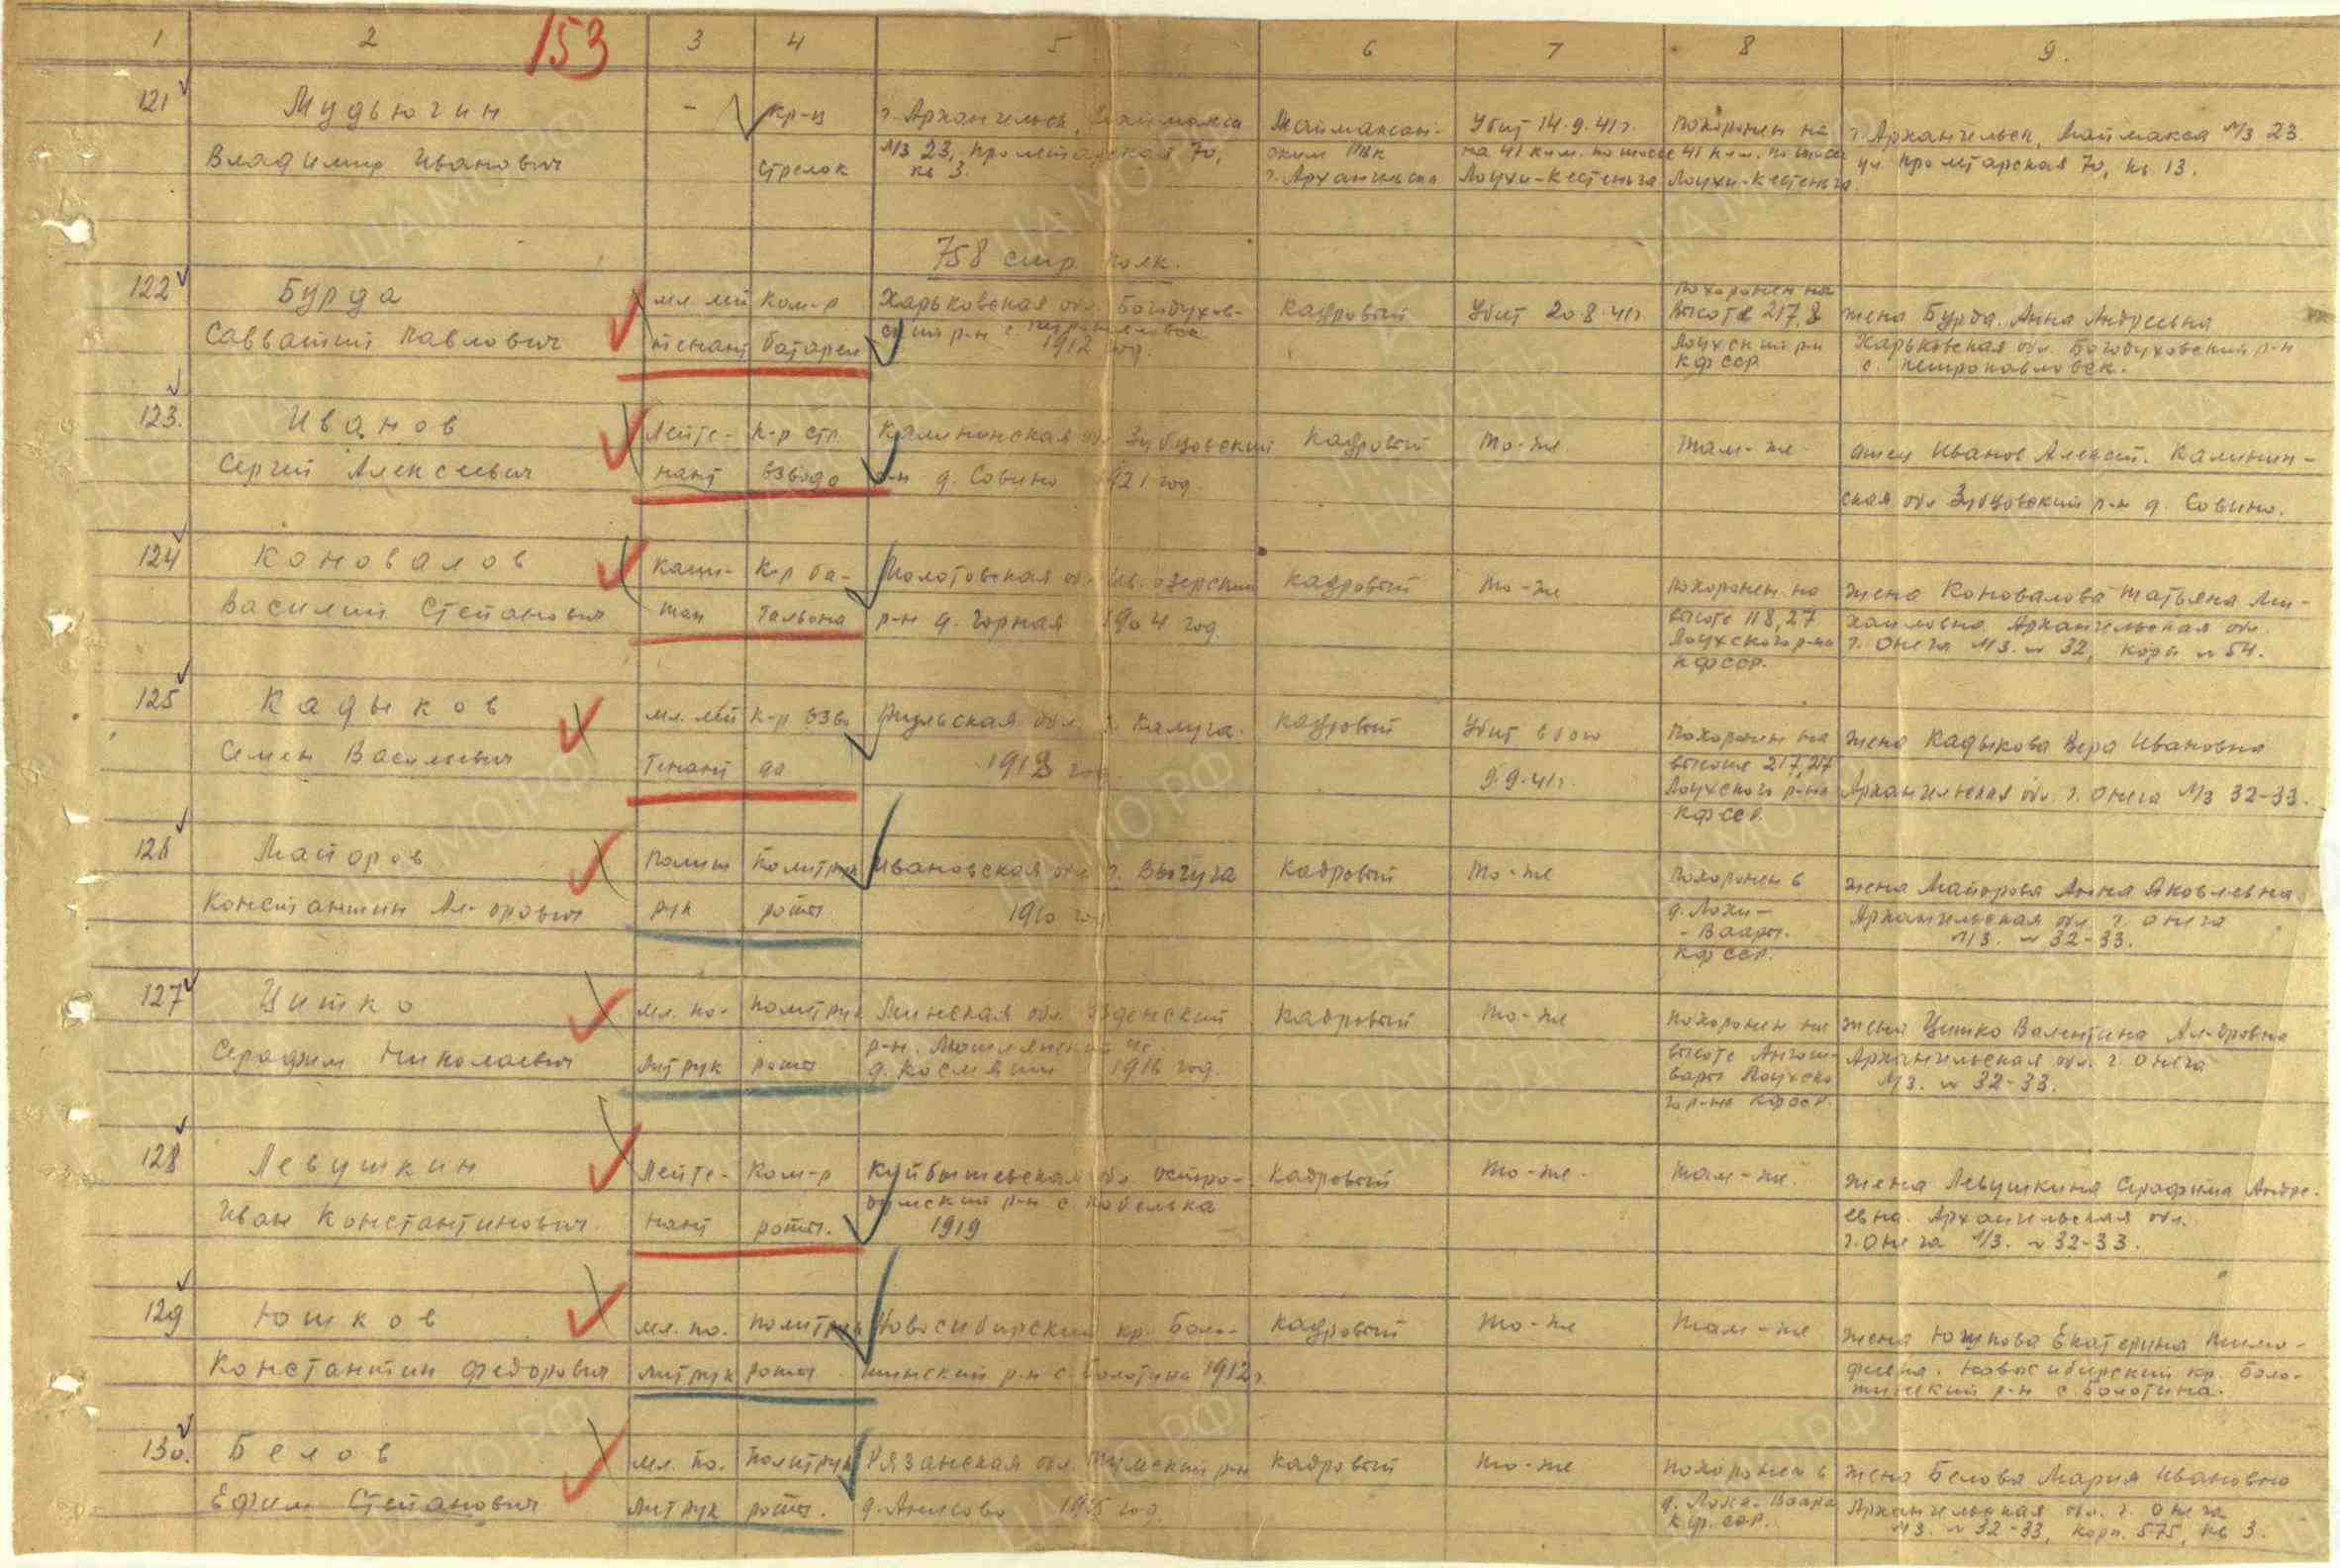 1 2 153 3 4 5 6 7 8 9.
121 Мудьюгин - кр-ц г. Архангельск, Маймакса Маймаксан- Убит 14.9.41г. похоронен на г. Архангельск, Маймакса л/з 23
Владимир Иванович стрелок л/з 23, пролетарская 70, ским РВК на 41 клм. по шоссе 41 клм. по шоссе ул. пролетарская 70, кв 13.
кв 3. г. Архангельска Лоухи-Кестеньга Лоухи-Кестеньга
758 стр. полк.
122 Бурда мл. лей ком-р Харьковская обл. Богодухов- кадровый Убит 20.8.41г похоронен на высоте 217,8 жена Бурда. Анна Андреевна
Савватий Павлович тенант батареи ский р-н с. 1912 год. Лоухский р-н Харьковская обл. Богодуховский р-н
КФССР с. петропавловск.
123. Иванов Лейте- к-р стр. Калининская обл Зубцовский кадровый то-же. там-же отец Иванов Алексей. Калинин-
Сергей Алексеевич нант взвода р-н д. Совино 1921 год. ская обл Зубцовский р-н д. Совино.
124 Коновалов Капи- к-р ба- Молотовская обл. озерский кадровый то-же похоронен на жена Коновалова Татьяна Ми-
Василий Степанович тан тальона р-н д. Горная 1904 год. высоте 118,27 хайловна Архангельская обл.
Лоухского р-на г. Онега л/з. № 32, корп № 54.
КФССР.
125 Кадыков мл. лей к-р взво Тульская обл. г. Калуга. кадровый Убит в бою похоронен на жена Кадыкова Вера Ивановна
Семен Васильевич тенант да. 1913 год 9.9.41г. высоте 217,27
Лоухского р-на Архангельская обл. г. Онега л/з 32-33.
КФССР.
126 Майоров Полит Политрук Ивановская обл. г. Вычуга кадровый то-же похоронен в жена Майорова Анна Яковлевна
Константин Ал-дрович рук роты 1910 год д. Лохи- Архангельская обл. г. Онега
-Ваары. л/з. № 32-33.
КФССР.
127 Цитко мл. по- политрук Минская обл. Узденский кадровый то-же похоронен на жена Цитко Валентина Ал-дровна
Серафим Николаевич литрук роты р-н. высоте Архангельская обл. г. Онега
д. 1916 год. вары Лоухско л/з. № 32-33.
го р-на КФССР.
128 Левушкин Лейте- Ком-р Куйбышевская обл кадровый то-же. там-же. жена Левушкина Серафима Андре-
Иван Константинович. нант роты. р-н с Кобелька евна. Архангельская обл.
1919 г. Онега л/з. № 32-33.
129 Юшков мл. по. политрук Новосибирский кр. Боло- кадровый то-же там-же жена Юшкова Екатерина Тимо-
Константин Федорович литрук роты. тнинский р-н с. Болотина 1912г феевна. Новосибирский кр. Боло-
тнинский р-н с. Болотина.
130. Белов мл. по. политрук Рязанская обл. Тумский р-н кадровый то-же похоронен в жена Белова Мария Ивановна
Ефим Степанович литрук роты. д. Аниково год. д. Лохи-Ваара Архангельская обл. г. Онега
К.Ф.ССР. л/з. № 32-33, корп. 575, кв 3.